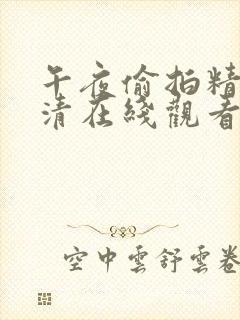 午夜偷拍精
清在綫觀看
空中雲舒雲卷